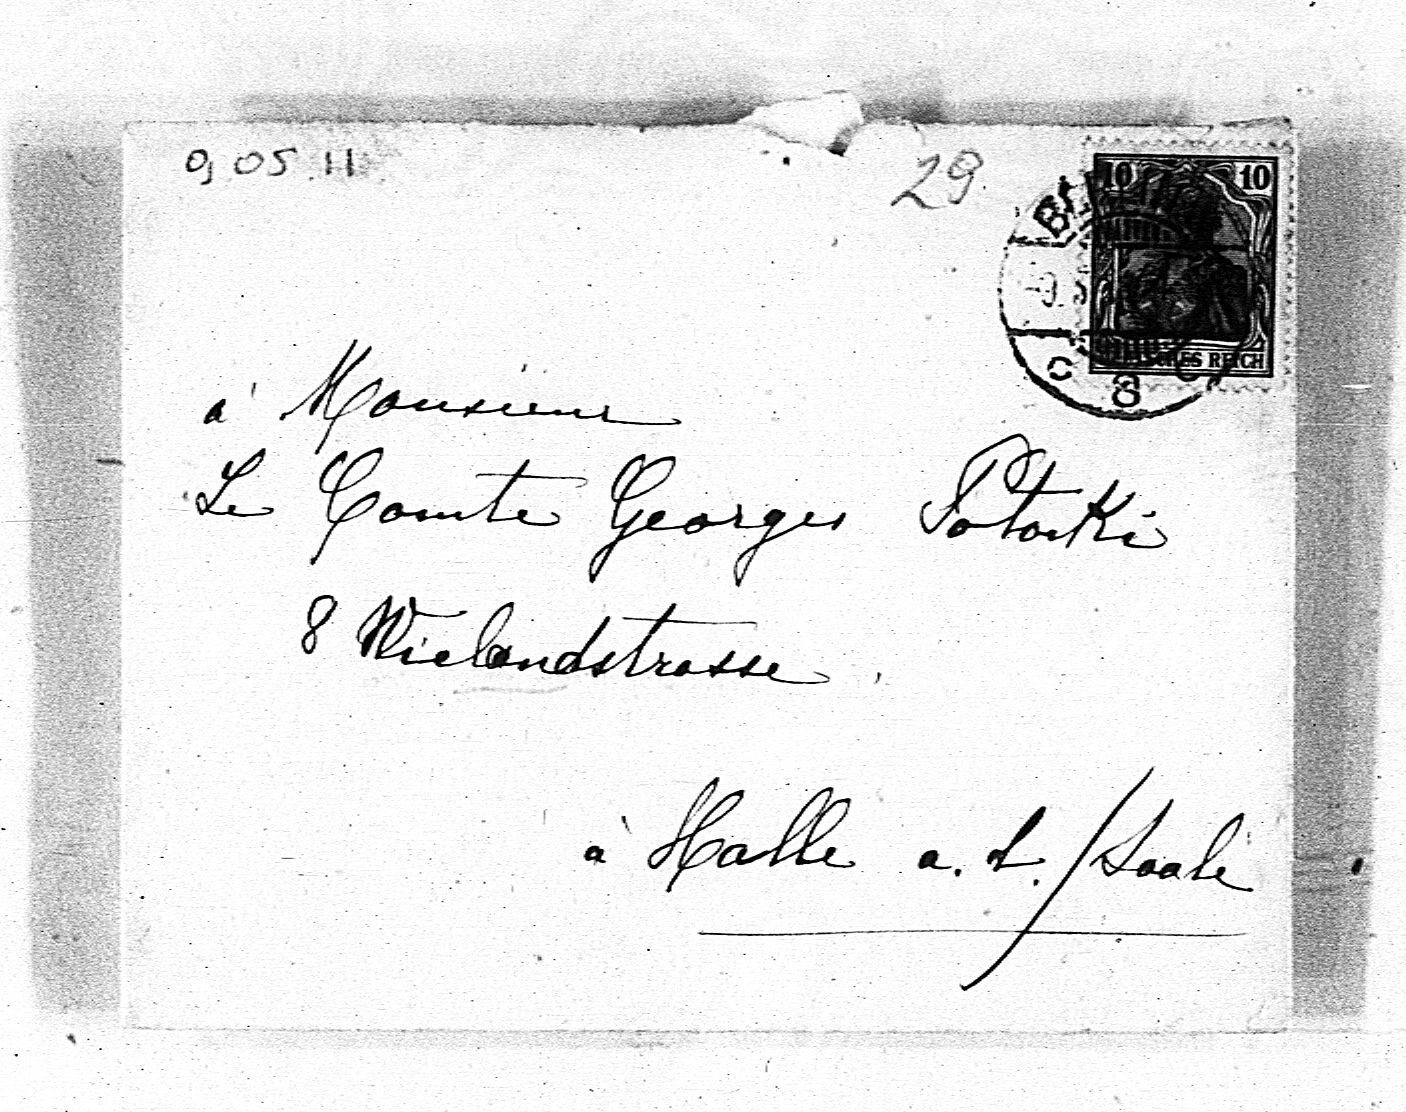 9 05 11
29
10 10
BERLIN
DEUTSCHES REICH
C 8 C
à Monsieur
Le Comte Georges Potocki
8 Wielandstrasse
à Halle a. S. / Saale